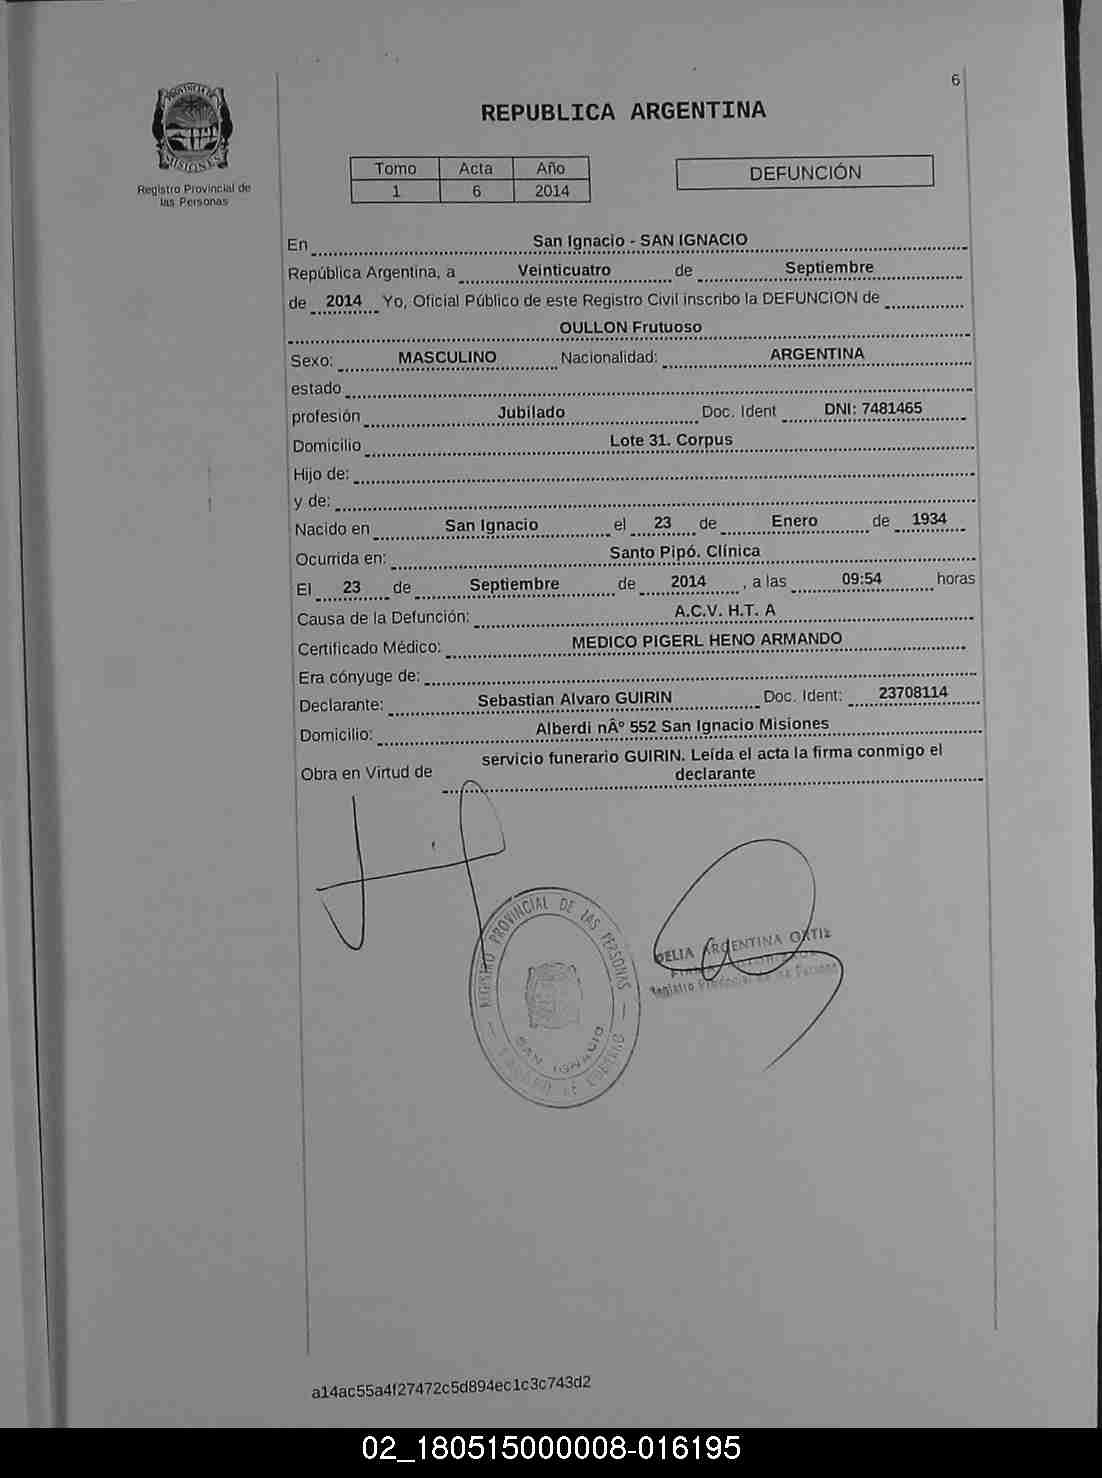 6
PROVINCIA DE
MISIONES
Registro Provincial de
las Personas
REPUBLICA ARGENTINA
Tomo Acta Año
1 6 2014
DEFUNCIÓN
En San Ignacio - SAN IGNACIO
República Argentina, a Veinticuatro de Septiembre
de 2014 Yo, Oficial Público de este Registro Civil inscribo la DEFUNCION de
OULLON Frutuoso
Sexo: MASCULINO Nacionalidad: ARGENTINA
estado
profesión Jubilado Doc. Ident DNI: 7481465
Domicilio Lote 31. Corpus
Hijo de:
y de:
Nacido en San Ignacio el 23 de Enero de 1934
Ocurrida en: Santo Pipó. Clínica
El 23 de Septiembre de 2014 , a las 09:54 horas
Causa de la Defunción: A.C.V. H.T. A
Certificado Médico: MEDICO PIGERL HENO ARMANDO
Era cónyuge de:
Declarante: Sebastian Alvaro GUIRIN Doc. Ident: 23708114
Domicilio: Alberdi nÂº 552 San Ignacio Misiones
Obra en Virtud de servicio funerario GUIRIN. Leída el acta la firma conmigo el
declarante
REGISTRO PROVINCIAL DE LAS PERSONAS
SAN IGNACIO
DELIA ARGENTINA ORTIZ
Registro Provincial de las Personas
a14ac55a4f27472c5d894ec1c3c743d2
02_180515000008-016195